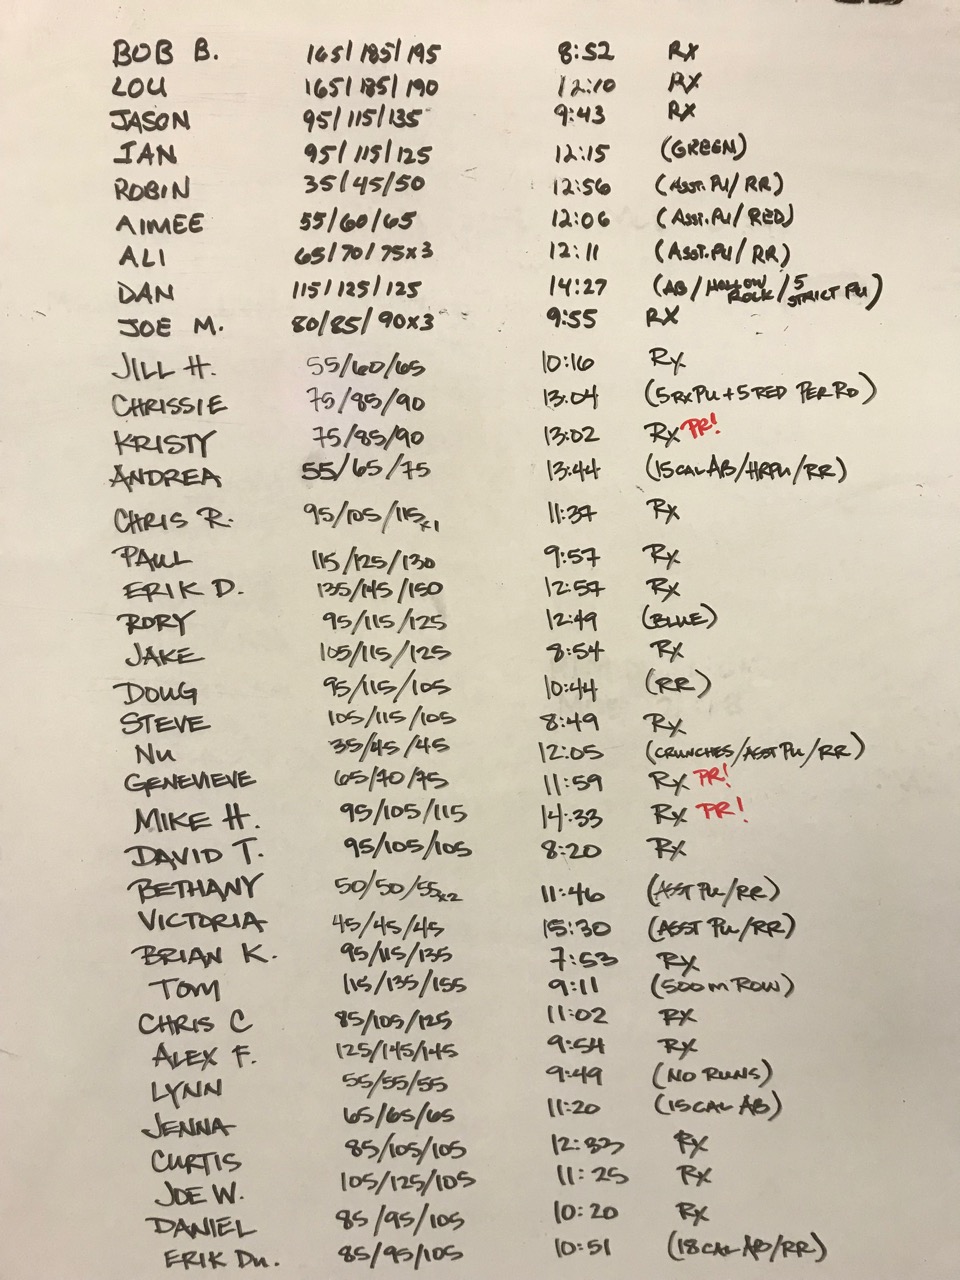 BOB B. 165/185/195 8:52 RX
LOU 165/185/190 12:10 RX
JASON 95/115/135 9:43 RX
IAN 95/115/125 12:15 (GREEN)
ROBIN 35/45/50 12:56 (ASST. PU/RR)
AIMEE 55/60/65 12:06 (ASST. PU/RED)
ALI 65/70/75x3 12:11 (ASST. PU/RR)
DAN 115/125/125 14:27 (AB/HOLLOW ROCK/5 STRICT PU)
JOE M. 80/85/90x3 9:55 RX
JILL H. 55/60/65 10:16 RX
CHRISSIE 75/85/90 13:04 (5 RX PU + 5 RED PER RD)
KRISTY 75/85/90 13:02 RX PR!
ANDREA 55/65/75 13:44 (15 CAL AB/HRPU/RR)
CHRIS R. 95/105/115x1 11:37 RX
PAUL 115/125/130 9:57 RX
ERIK D. 135/145/150 12:57 RX
RORY 95/115/125 12:49 (BLUE)
JAKE 105/115/125 8:54 RX
DOUG 95/115/105 10:44 (RR)
STEVE 105/115/105 8:49 RX
NU 35/45/45 12:05 (CRUNCHES/ASST PU/RR)
GENEVIEVE 65/70/75 11:59 RX PR!
MIKE H. 95/105/115 14:33 RX PR!
DAVID T. 95/105/105 8:20 RX
BETHANY 50/50/55x2 11:46 (ASST PU/RR)
VICTORIA 45/45/45 15:30 (ASST PU/RR)
BRIAN K. 95/115/135 7:53 RX
TOM 115/135/155 9:11 (500 m ROW)
CHRIS C 85/105/125 11:02 RX
ALEX F. 125/145/145 9:54 RX
LYNN 55/55/55 9:49 (NO RUNS)
JENNA 65/65/65 11:20 (15 CAL AB)
CURTIS 85/105/105 12:33 RX
JOE W. 105/125/105 11:25 RX
DANIEL 85/95/105 10:20 RX
ERIK DU. 85/95/105 10:51 (18 CAL AB/RR)